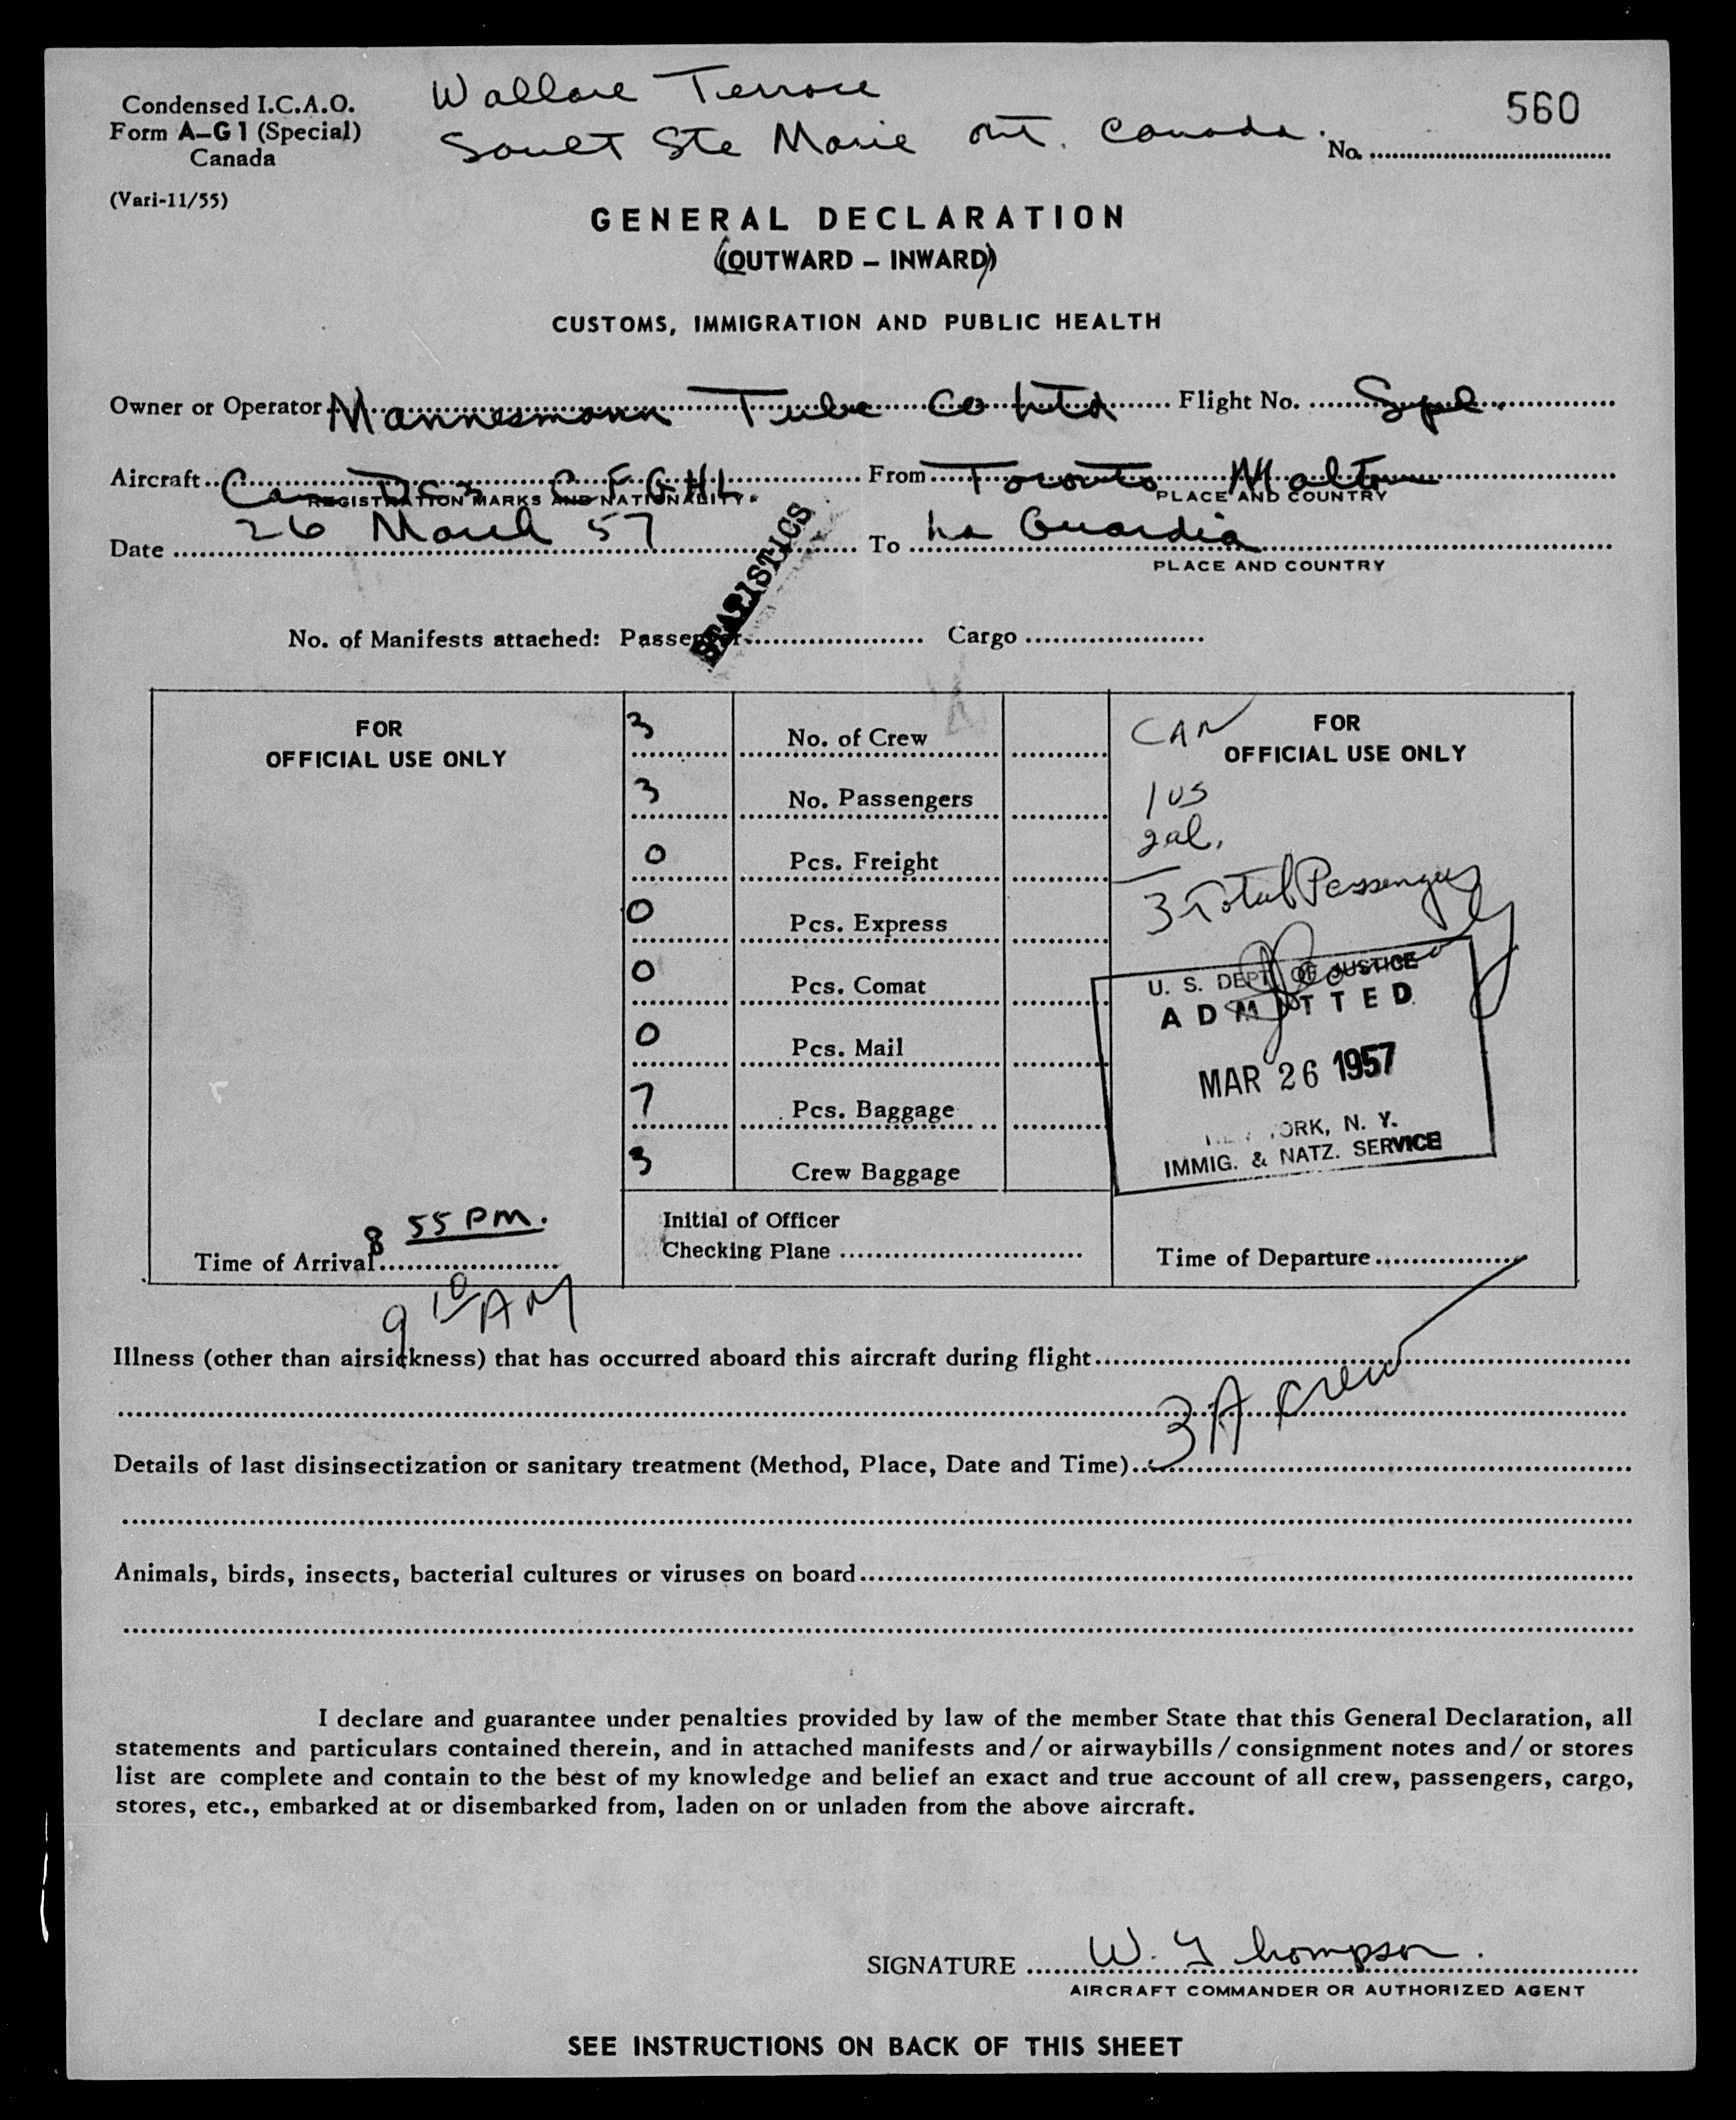 Condensed I.C.A.O.
Form A–G1 (Special)
Canada
(Vari-11/55)
Wallace Terrace
Sault Ste Marie ont. Canada.
560
No. ....................
GENERAL DECLARATION
(OUTWARD – INWARD)
CUSTOMS, IMMIGRATION AND PUBLIC HEALTH
Owner or Operator Mannesmann Tube Co Ltd Flight No.
Aircraft Can DC3 C-FGHL From Toronto Malton
REGISTRATION MARKS AND NATIONALITY. PLACE AND COUNTRY
Date 26 March 57 To La Guardia
PLACE AND COUNTRY
STATISTICS
No. of Manifests attached: Passenger.................... Cargo ....................
FOR
OFFICIAL USE ONLY
3 No. of Crew
3 No. Passengers
0 Pcs. Freight
0 Pcs. Express
0 Pcs. Comat
0 Pcs. Mail
7 Pcs. Baggage
3 Crew Baggage
CAN
FOR
OFFICIAL USE ONLY
1 US
gal.
3 Total Passengers
U. S. DEPT OF JUSTICE
ADMITTED
MAR 26 1957
NEW YORK, N. Y.
IMMIG. & NATZ. SERVICE
Time of Arrival 8 55 PM.
Initial of Officer
Checking Plane ....................
Time of Departure ....................
9 10 AM
Illness (other than airsickness) that has occurred aboard this aircraft during flight
3 A crew
Details of last disinsectization or sanitary treatment (Method, Place, Date and Time)
Animals, birds, insects, bacterial cultures or viruses on board
I declare and guarantee under penalties provided by law of the member State that this General Declaration, all
statements and particulars contained therein, and in attached manifests and/or airwaybills/consignment notes and/or stores
list are complete and contain to the best of my knowledge and belief an exact and true account of all crew, passengers, cargo,
stores, etc., embarked at or disembarked from, laden on or unladen from the above aircraft.
SIGNATURE W. Thompson.
AIRCRAFT COMMANDER OR AUTHORIZED AGENT
SEE INSTRUCTIONS ON BACK OF THIS SHEET